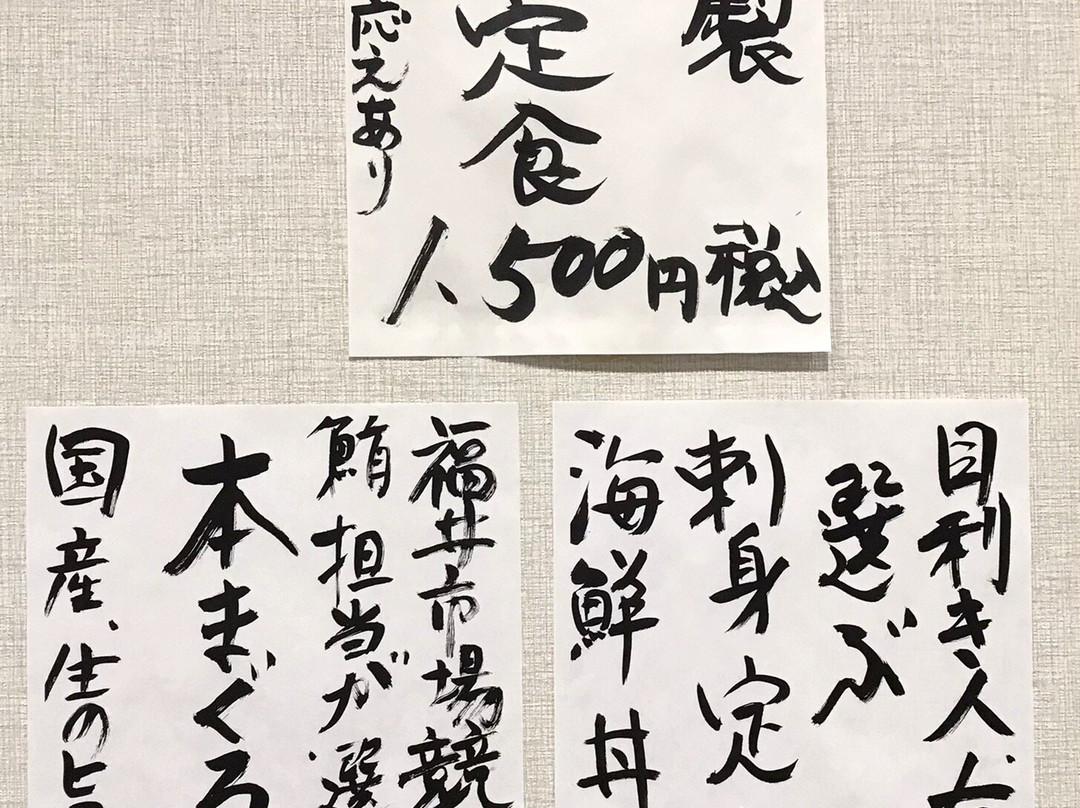 製
定食
応えあり
1,500円税込
目利き人が
選ぶ
刺身定
海鮮丼
福井市場競
鮪担当が選
本まぐろ
国産、生の